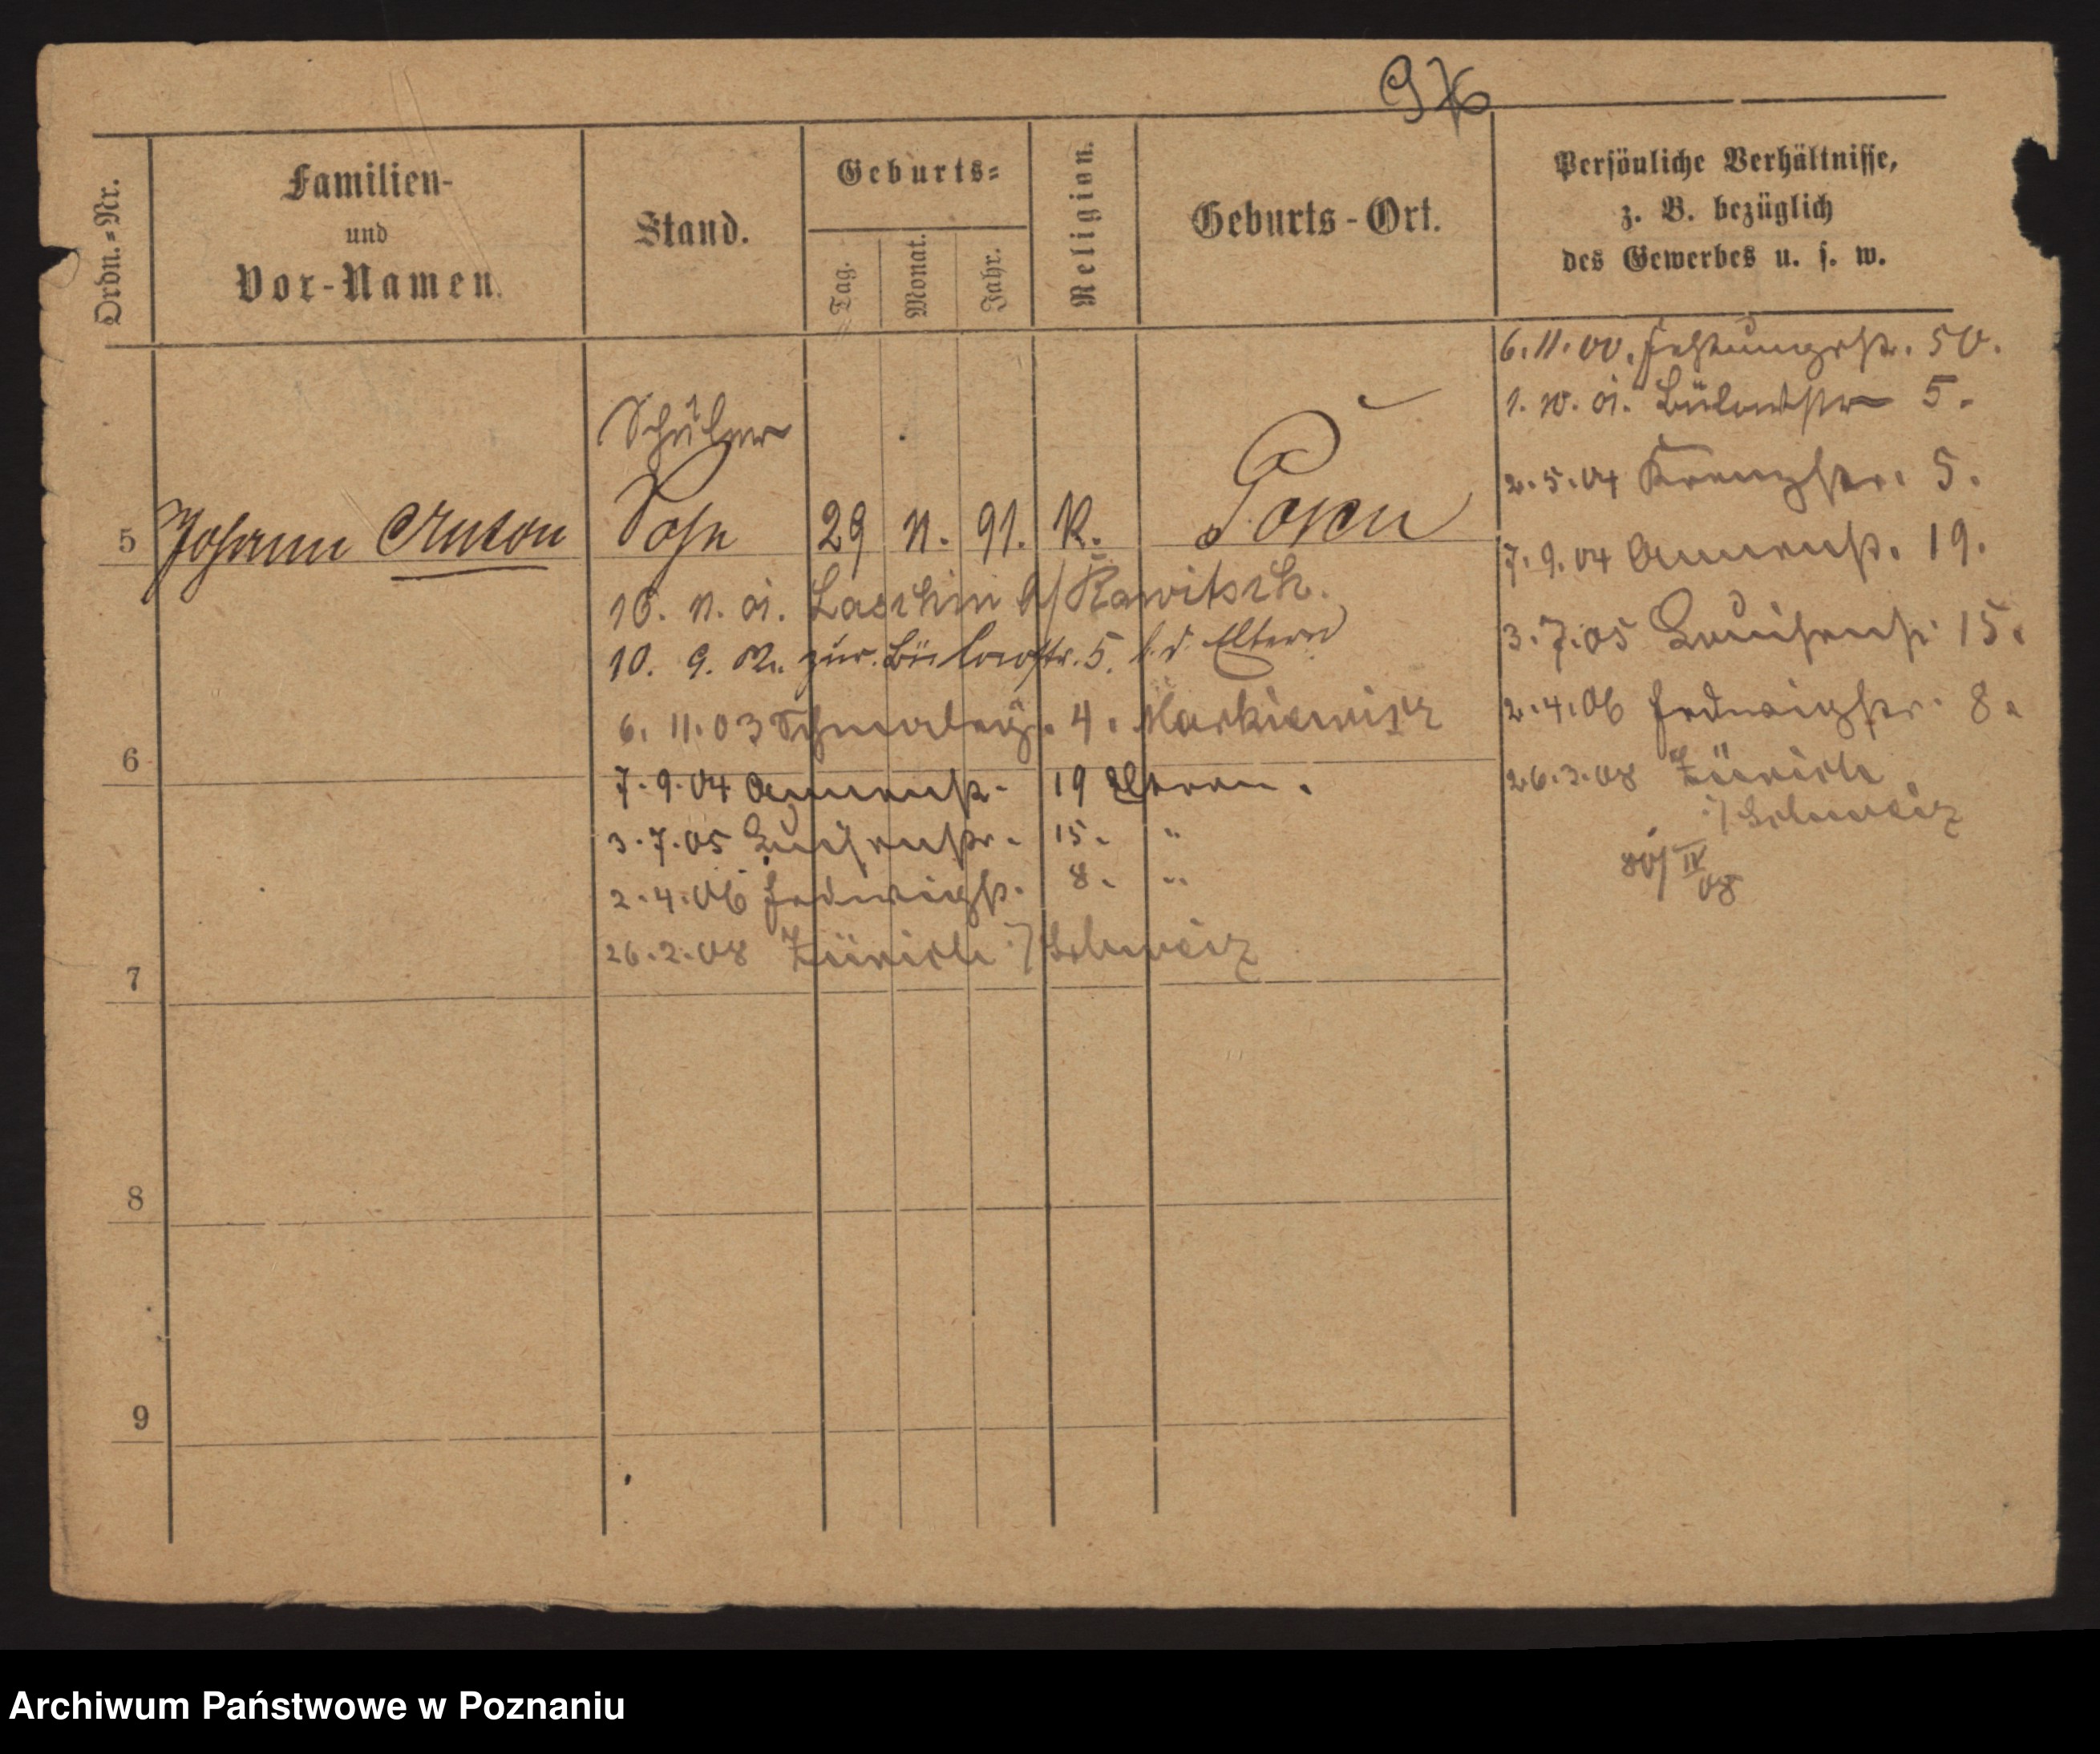 976
Ordn.=Nr.
Familien-
und
Vor-Namen.
Stand.
Geburts=
Tag.
Monat.
Jahr.
Religion.
Geburts-Ort.
Persönliche Verhältnisse,
z. B. bezüglich
des Gewerbes u. s. w.
Schüler
5 Johann Anton Sohn 29 11. 91. K. Posen
16. 11. 01. Laschin b/ Rawitsch.
10. 9. 02. zur. Bülowstr. 5. b. d. Eltern
6. 11. 03 4. Markiewicz
6
7. 9. 04 Annenstr. 19 Eltern.
3. 7. 05 Luisenstr. 15. "
2. 4. 06 Hedwigstr. 8. "
26. 3. 08 Zürich i/ Schweiz
7
8
9
6. 11. 00. Festungsstr. 50.
1. 10. 01. Bülowstr 5.
2. 5. 04 Kreuzstr. 5.
7. 9. 04 Annenstr. 19.
3. 7. 05 Louisenstr. 15.
2. 4. 06 Hedwigstr. 8.
26. 3. 08 Zürich
i/ Schweiz
IV
08
Archiwum Państwowe w Poznaniu